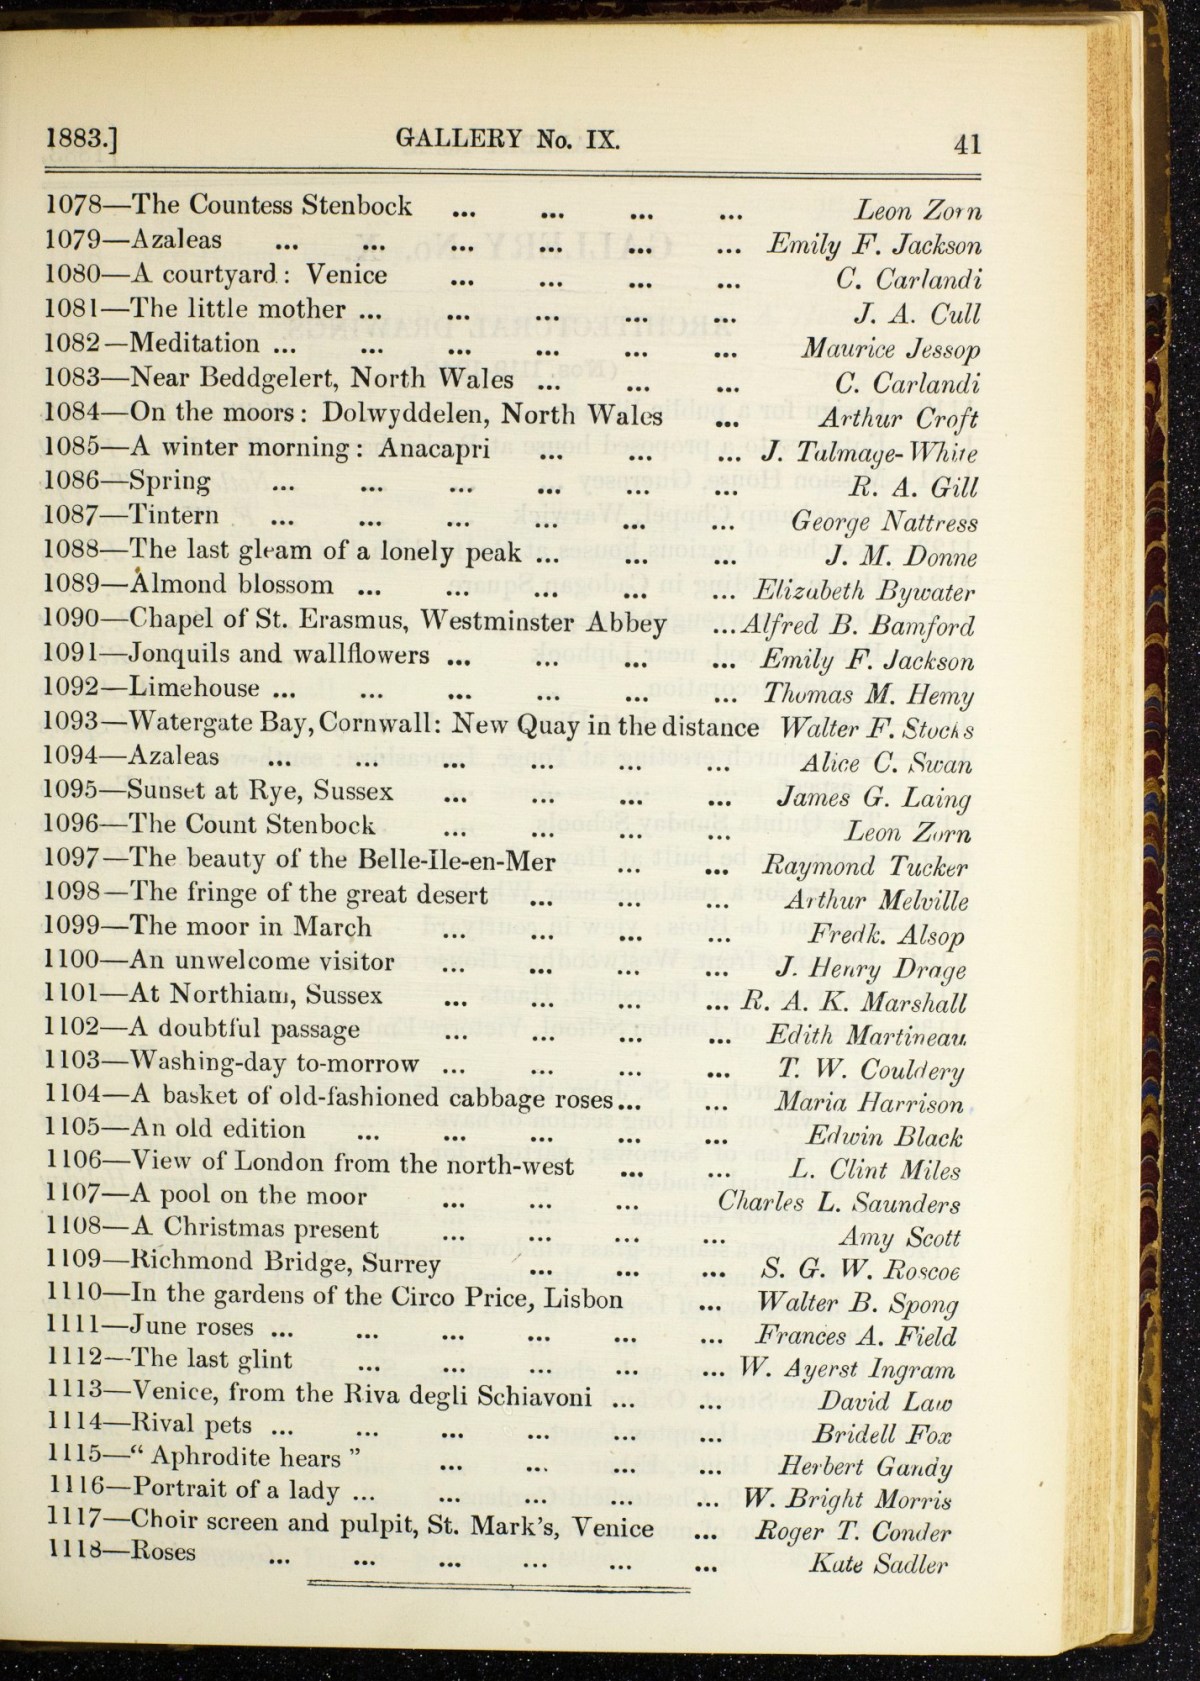 1883.] GALLERY No. IX. 41
1078—The Countess Stenbock ... ... ... ... Leon Zorn
1079—Azaleas ... ... ... ... ... ... Emily F. Jackson
1080—A courtyard : Venice ... ... ... ... C. Carlandi
1081—The little mother ... ... ... ... ... J. A. Cull
1082—Meditation ... ... ... ... ... ... Maurice Jessop
1083—Near Beddgelert, North Wales ... ... ... C. Carlandi
1084—On the moors : Dolwyddelen, North Wales ... Arthur Croft
1085—A winter morning : Anacapri ... ... ... J. Talmage-White
1086—Spring ... ... ... ... ... ... R. A. Gill
1087—Tintern ... ... ... ... ... ... George Nattress
1088—The last gleam of a lonely peak ... ... ... J. M. Donne
1089—Almond blossom ... ... ... ... ... Elizabeth Bywater
1090—Chapel of St. Erasmus, Westminster Abbey ... Alfred B. Bamford
1091—Jonquils and wallflowers ... ... ... ... Emily F. Jackson
1092—Limehouse ... ... ... ... ... ... Thomas M. Hemy
1093—Watergate Bay, Cornwall : New Quay in the distance Walter F. Stocks
1094—Azaleas ... ... ... ... ... ... Alice C. Swan
1095—Sunset at Rye, Sussex ... ... ... ... James G. Laing
1096—The Count Stenbock ... ... ... ... Leon Zorn
1097—The beauty of the Belle-Ile-en-Mer ... ... Raymond Tucker
1098—The fringe of the great desert ... ... ... Arthur Melville
1099—The moor in March ... ... ... ... Fredk. Alsop
1100—An unwelcome visitor ... ... ... ... J. Henry Drage
1101—At Northiam, Sussex ... ... ... ... R. A. K. Marshall
1102—A doubtful passage ... ... ... ... Edith Martineau
1103—Washing-day to-morrow ... ... ... ... T. W. Couldery
1104—A basket of old-fashioned cabbage roses ... ... Maria Harrison
1105—An old edition ... ... ... ... ... Edwin Black
1106—View of London from the north-west ... ... L. Clint Miles
1107—A pool on the moor ... ... ... Charles L. Saunders
1108—A Christmas present ... ... ... ... Amy Scott
1109—Richmond Bridge, Surrey ... ... ... S. G. W. Roscoe
1110—In the gardens of the Circo Price, Lisbon ... Walter B. Spong
1111—June roses ... ... ... ... ... ... Frances A. Field
1112—The last glint ... ... ... ... ... W. Ayerst Ingram
1113—Venice, from the Riva degli Schiavoni ... ... David Law
1114—Rival pets ... ... ... ... ... ... Bridell Fox
1115—“ Aphrodite hears ” ... ... ... ... Herbert Gandy
1116—Portrait of a lady ... ... ... ... ... W. Bright Morris
1117—Choir screen and pulpit, St. Mark's, Venice ... Roger T. Conder
1118—Roses ... ... ... ... ... ... Kate Sadler